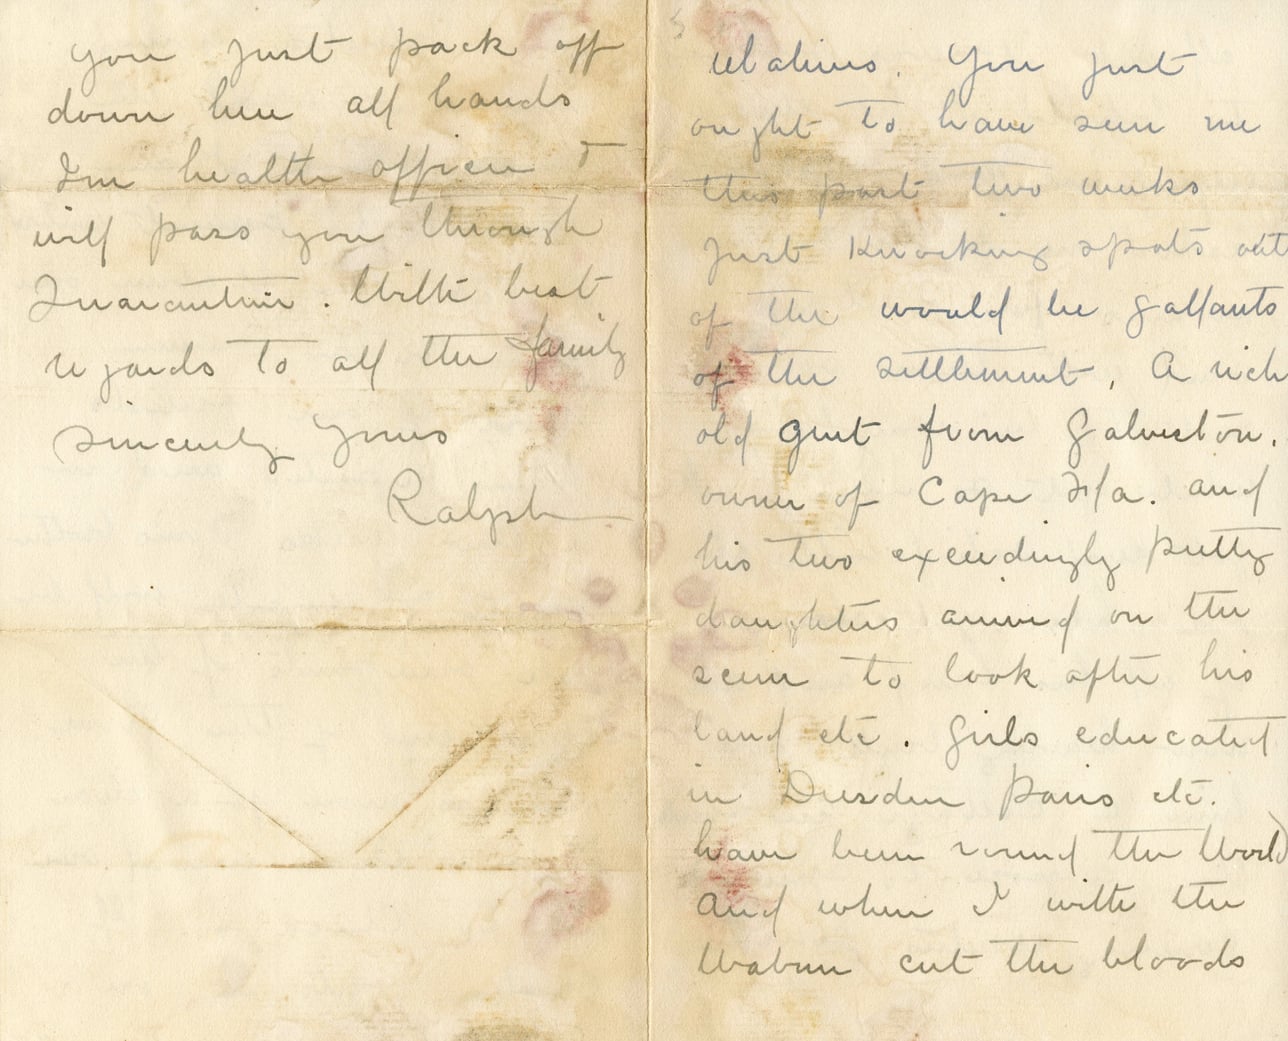 you just pack off
down here all hands
I'm health officer &
will pass you through
Quarantine. With best
regards to all the family
Sincerely Yours
Ralph
5
relatives. You just
ought to have seen me
this past two weeks
just Knocking spots out
of the would be gallants
of the settlement. A rich
old gent from Galveston,
owner of Cape Fla. and
his two exceedingly pretty
daughters arrived on the
scene to look after his
land etc. Girls educated
in Dresden Paris etc.
have been round the World
and when I with the
cut the bloods